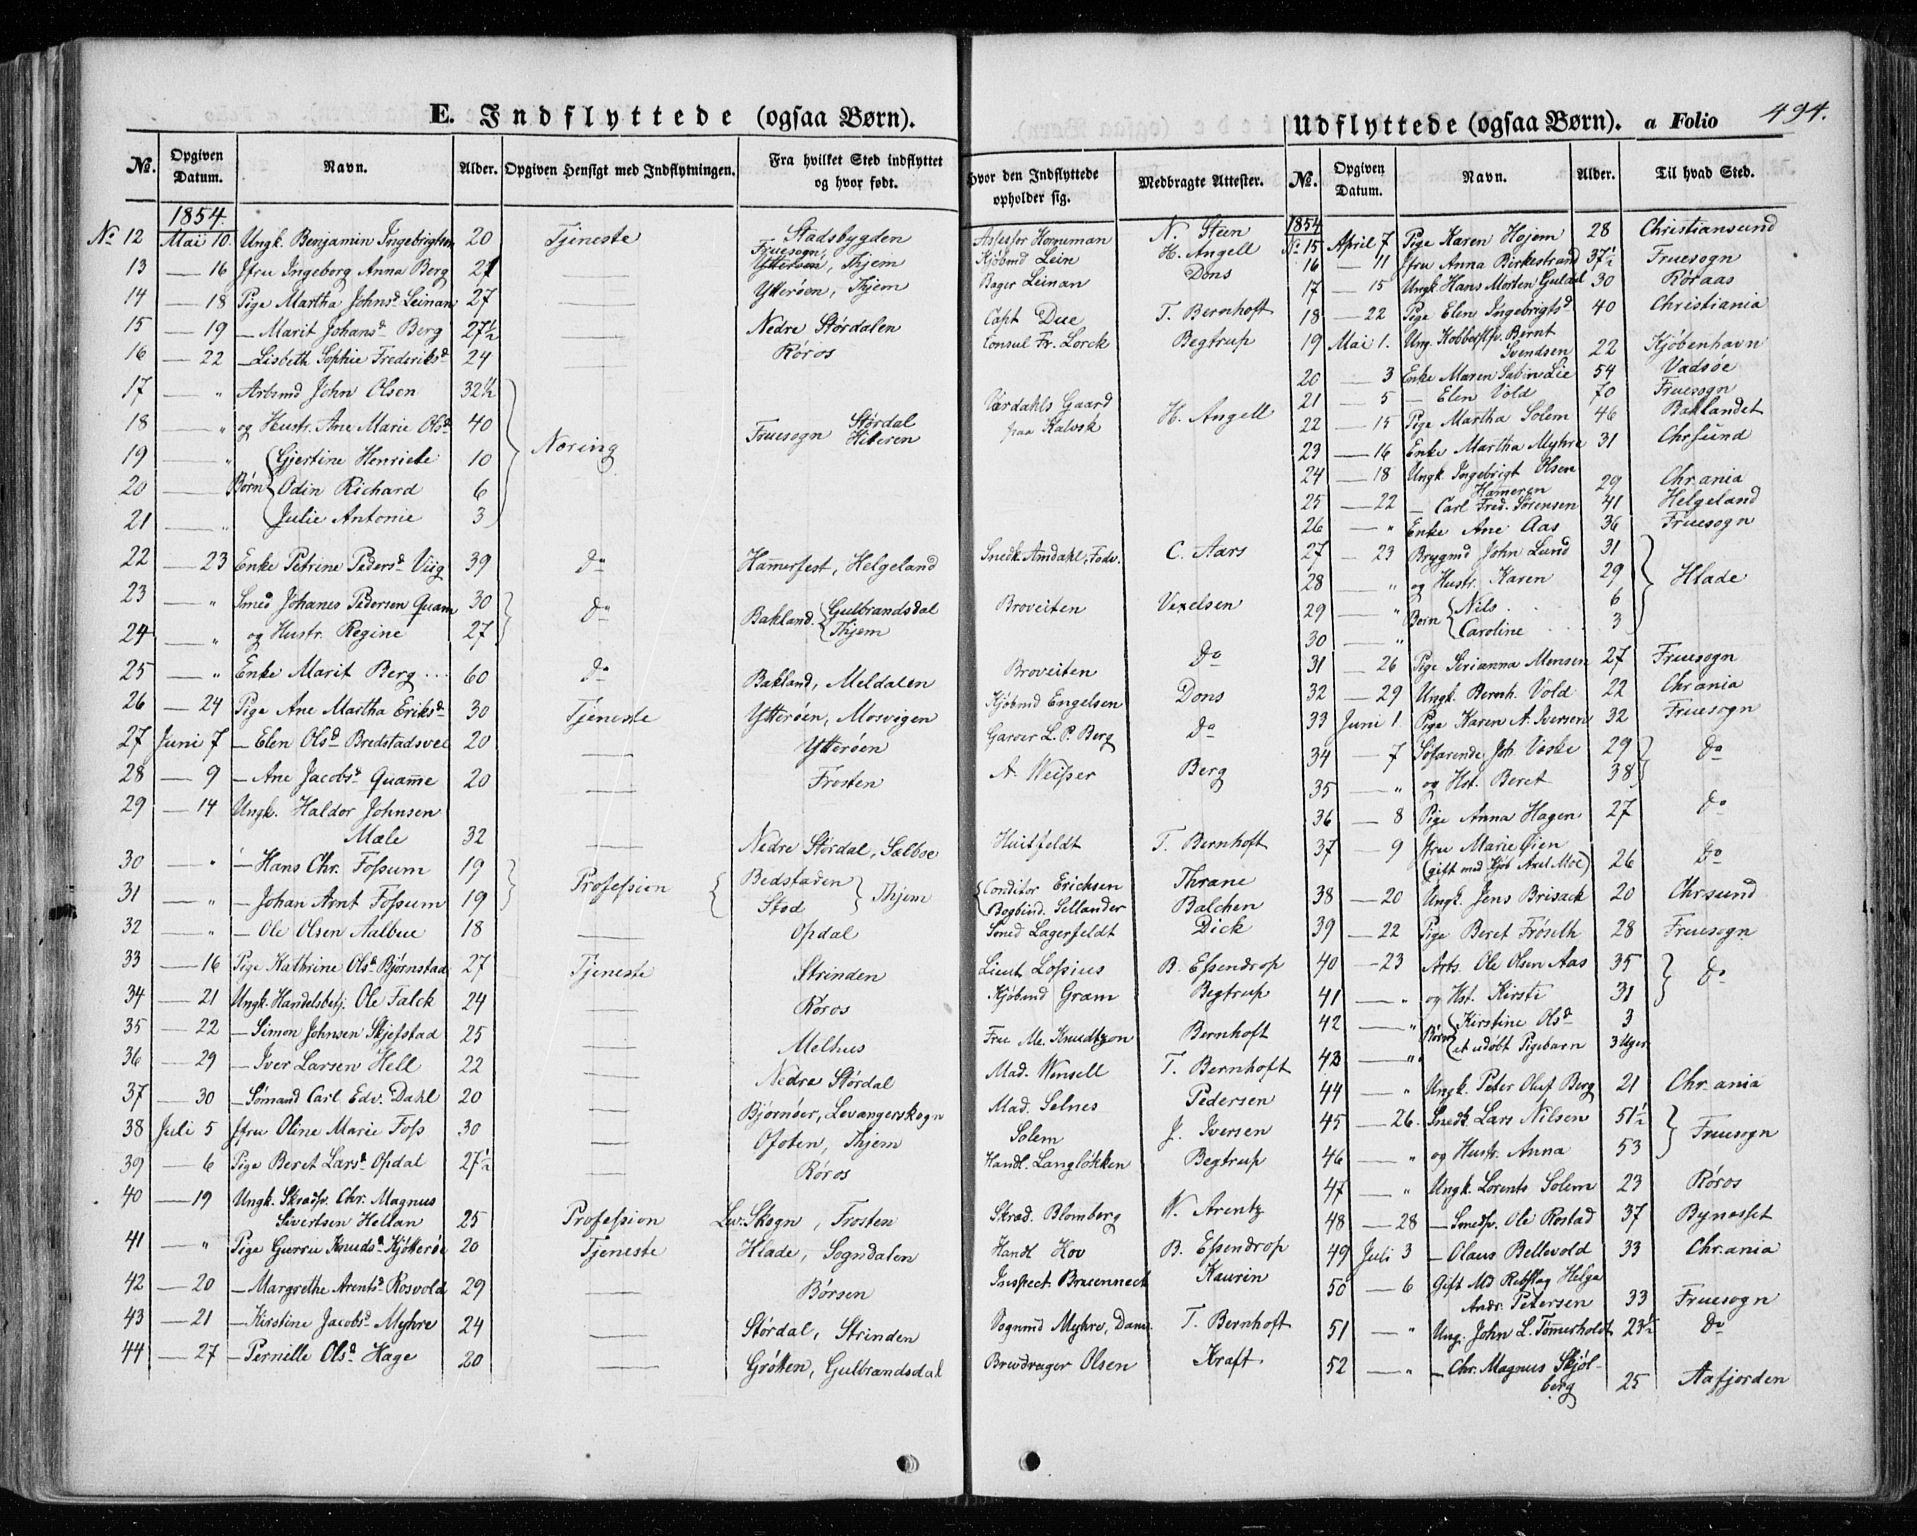 494.
E. Indflyttede (ogsaa Børn). Udflyttede (ogsaa Børn). a Folio
No. Opgiven Datum. Navn. Alder. Opgiven Hensigt med Indflytningen. Fra hvilket Sted indflyttet og hvor født. Hvor den Indflyttede opholder sig. Medbragte Attester.
1854.
No 12 Mai 10. Ungk. Benjamin Ingebrigtsen 20 Tjeneste Stadsbygden Assessor Horneman N. Steen
13 — 16 Jfru Ingeborg Anna Berg 27 — Fruesogn, Ytterøen, Thjem Kjøbmd Lein H. Angell
14 — 18 Pige Martha Johnsd. Leinan 27 — Ytterøen, Thjem Bager Leinan Dons
15 — 19 — Marit Johansd. Berg 27½ — Nedre Størdalen Capt Due T. Bernhoft
16 — 22 — Lisbeth Sophie Frederiksd. 24 — Røros Consul Fr. Lorck Begtrup
17 — " Arbsmd John Olsen 32½
18 — " og Hustr. Ane Marie Olsd. 40 Næring Fruesogn Størdal Hiteren Værdahls Gaard paa Kalvsk H. Angell
19 — " Gjertine Henriete 10
20 — Børn Odin Richard 6
21 — " Julie Antonie 3
22 — 23 Enke Petrine Pedersd. Viig 39 do Hamerfest, Helgeland Snedk. Amdahl, Fadr. C. Aars
23 — " Smed Johanes Pedersen Quam 30 do Bakland Gulbrandsdal Broveiten Vexelsen
24 — " og Hustr. Regine 27 Thjem
25 — " Enke Marit Berg 60 do Bakland, Meldalen Broveiten Do
26 — 24 Pige Ane Martha Eriksd. 30 Tjeneste Ytterøen, Mosvigen Kjøbmd Engelsen Dons
27 Juni 7 — Elen Olsd. Bredstadsvei 20 — Ytterøen Garver L. P. Berg Do
28 — 9 — Ane Jacobsd. Quamme 20 — Frosten A. Weisser Berg
29 — 14 Ungk. Haldor Johnsen Mæle 32 — Nedre Størdal, Sælboe Huitfeldt T. Bernhoft
30 — " — Hans Chr. Fossum 19 Profession Bedstaden Thjem Conditor Erichsen Thrane
31 — " — Johan Arnt Fossum 19 Stod Bogbind. Sellander Balchen
32 — " — Ole Olsen Aalbue 18 — Opdal Smed Lagerfeldt Dick
33 — 16 Pige Kathrine Olsd. Bjørnstad 27 Tjeneste Strinden Lieut Lossius B. Essendrop
34 — 21 Ungk. Handelsbetj. Ole Falck 24 — Røros Kjøbmd Gram Begtrup
35 — 22 — Simon Johnsen Skjefstad 25 — Melhus Frue Me. Knudtzon Bernhoft
36 — 29 — Iver Larsen Hell 22 — Nedre Størdal Mad. Wensell T. Bernhoft
37 — 30 — Sømand Carl Edv. Dahl 20 — Bjørnøer, Levangerskogn Mad. Selnes Pedersen
38 Juli 5 Jfru Oline Marie Foss 30 — Ofoten, Thjem Solem J. Iversen
39 — 6 Pige Beret Larsd. Opdal 27½ — Røros Handl. Langløkken Begtrup
40 — 19 Ungk. Skradsv. Chr. Magnus Sivertsen Hellan 25 Profession Lev. Skogn, Frosten Skrad. Blomberg N. Arentz
41 — " Pige Gurrie Knudsd. Kjøtterøe 20 Tjeneste Hlade, Sogndalen Handl Hov B. Essendrop
42 — 20 — Margrethe Arentsd. Rosvold 29 — Børsen Inspect. Bruenneck Kaurin
43 — 21 — Kirstine Jacobsd. Myhre 24 — Størdal, Strinden Vognmd Myhre, T. Bernhoft
44 — 27 — Pernille Olsd. Hage 20 — Grøtten, Gulbrandsdal Brevdrager Olsen Kraft
No. Opgiven Datum. Navn. Alder. Til hvad Sted.
1854
No 15 April 7 Pige Karen Hojem 28 Christiansund
16 — 11 Jfru Anna Birkestrand 37½ Fruesogn
17 — 15 Ungk. Hans Morten Gulad 30 Røraas
18 — 22 Pige Elen Ingebrigtsd. 40 Christiania
19 Mai 1. Ung. Kobberstsv. Bernt Svendsen 22 Kjøbenhavn
20 — 3 Enke Maren Sabin Lie 54 Vadsøe
21 — 5 — Elen Vold 70 Fruesogn
22 — 15 Pige Martha Solem 46 Baklandet
23 — 16 Enke Martha Myhre 31 Chrsund
24 — 18 Ungk. Ingebrigt Olsen Hameren 29 Chr.ania
25 — 22 — Carl Fred. Sørensen 41 Helgeland
26 — " Enke Ane Aas 36 Fruesogn
27 — 23 Brygmd John Lund 31
28 — " og Hustr. Karen 29 Hlade
29 — " Børn Nils 6
30 — " Caroline 3
31 — 26 Pige Serianna Monsen 27 Fruesogn
32 — 29 Ungk. Bernh. Vold 22 Chr.ania
33 Juni 1 Pige Karen A. Iversen 32 Fruesogn
34 — 7 Søfarende Joh. Viske 29 Do
35 — " og Hst. Beret 38
36 — 8 Pige Anna Hagen 27 Do
37 — 9 Jfru Marie Øien (gift med Kjøb Axel Moe) 26 Do
38 — 20 Ungk. Jens Brisack 20 Chrsund
39 — 22 Pige Beret Frøseth 28 Fruesogn
40 — 23 Arb. Ole Olsen Aas 35 Do
41 — " og Hst. Kirsti 31
42 — " Børn Kirstine Olsd. 3
43 — " et udøbt Pigebarn 3 Uger
44 — " Ungk. Peter Oluf Berg 21 Chr.ania
45 — 26. Snedk. Lars Nilsen 51½ Fruesogn
46 — " og Hustr. Anna 53
47 — " Ungk. Lorents Solem 23 Røros
48 — 28 — Smedsv. Ole Rostad 37 Bynesset
49 Juli 3 — Olaus Bellevold 33 Chr.ania
50 — 6 Gift Md Rebslag Helge Andr. Petersen 33 Fruesogn
51 — " Ung. John L. Tømmerholdt 23½ Do
52 — " — Chr. Magnus Skjølberg 25 Aafjorden